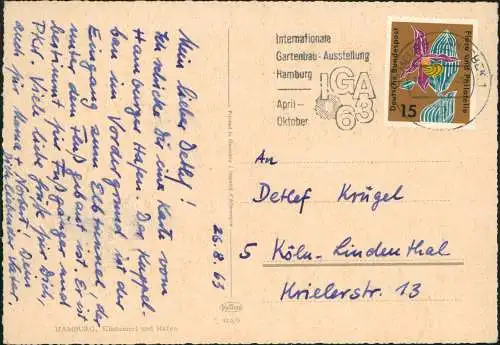 Internationale
Gartenbau-Ausstellung
Hamburg
IGA
63
April –
Oktober
Deutsche Bundespost
Flora und Philatelie
15
Mein lieber Detlef!
Ich schicke Dir eine Karte vom
Hamburger Hafen. Der Kuppel-
bau im Vordergrund ist der
Eingang zum Elbtunnel, der
unter dem Fluß gebaut ist. Er ist
bestimmt für Fußgänger und
PKW. Viele liebe Grüße für Dich,
auch für Mama + Norbert! Dein
26.8.63
An
Detlef Krügel
5 Köln-Lindenthal
Krielerstr. 13
HAMBURG, und Hafen